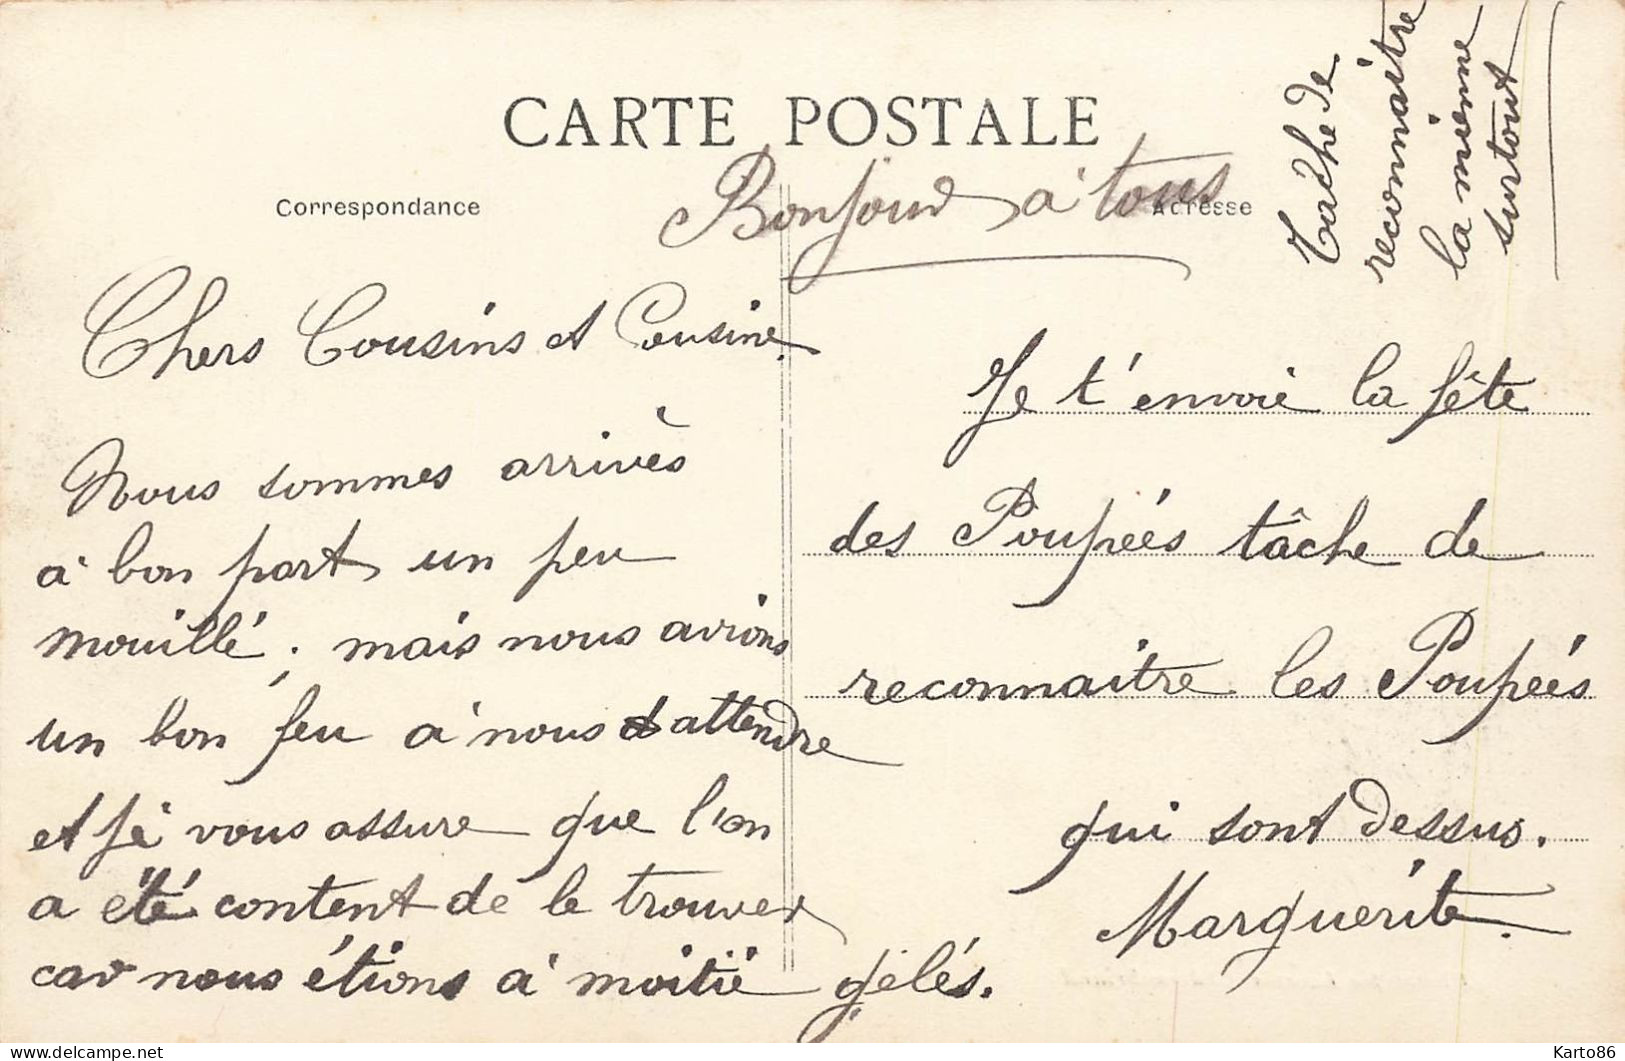 CARTE POSTALE
Correspondance
Adresse
Bonjour à tous
Tache de
reconnaitre
la mienne
surtout
Chers Cousins et Cousine.
Nous sommes arrivès
à bon port un peu
mouillé ; mais nous avions
un bon feu à nous attendre
et je vous assure que l'on
a été content de le trouver
car nous étions à moitié gelés.
Je t'envoie la fête
des Poupées tâche de
reconnaitre les Poupées
qui sont dessus.
Marguerite.
delcampe.net
Karto86